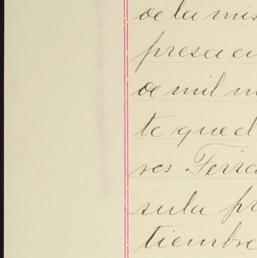 de la mis
presa en
de mil n
te que el
res Ferra
sula pr
tiembre